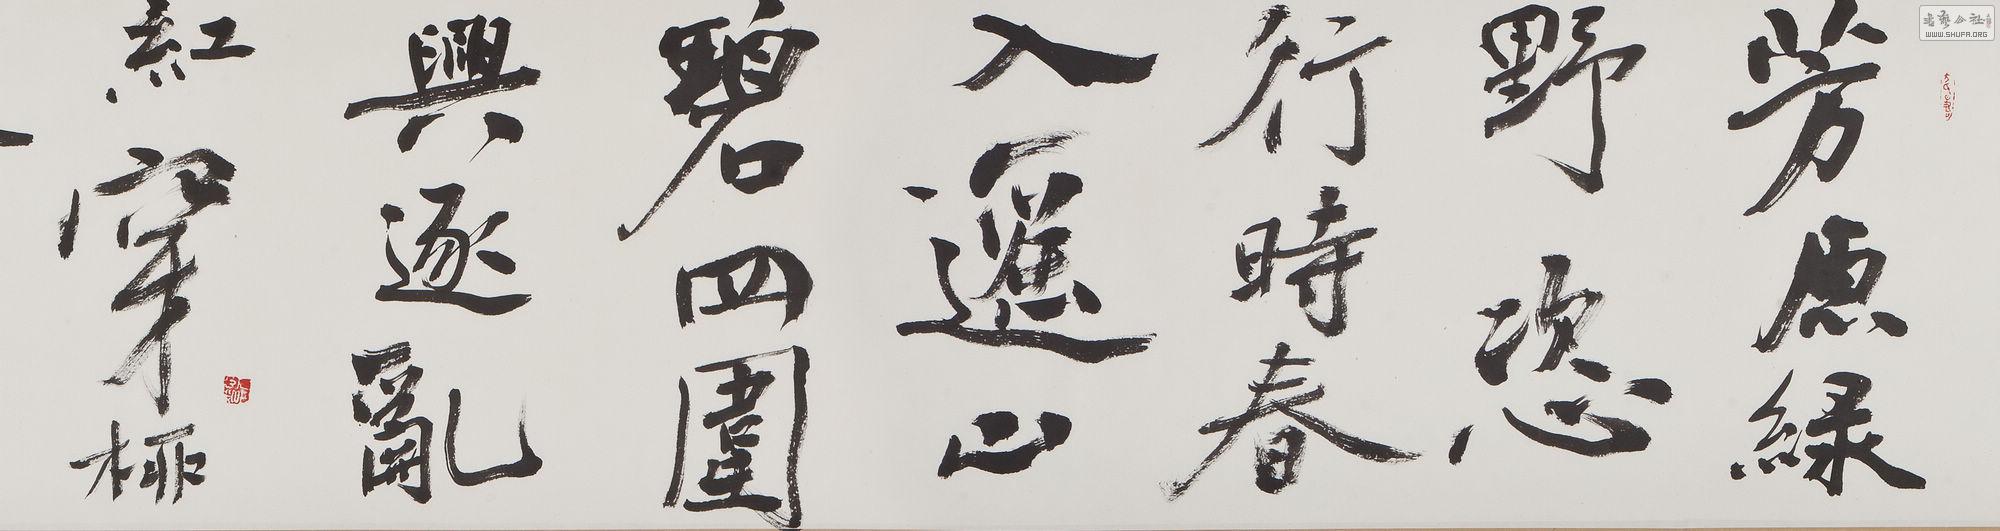 芳原綠
野恣
行時春
入遥山
碧四圍
興逐亂
紅穿
書藝公社
WWW.SHUFA.ORG